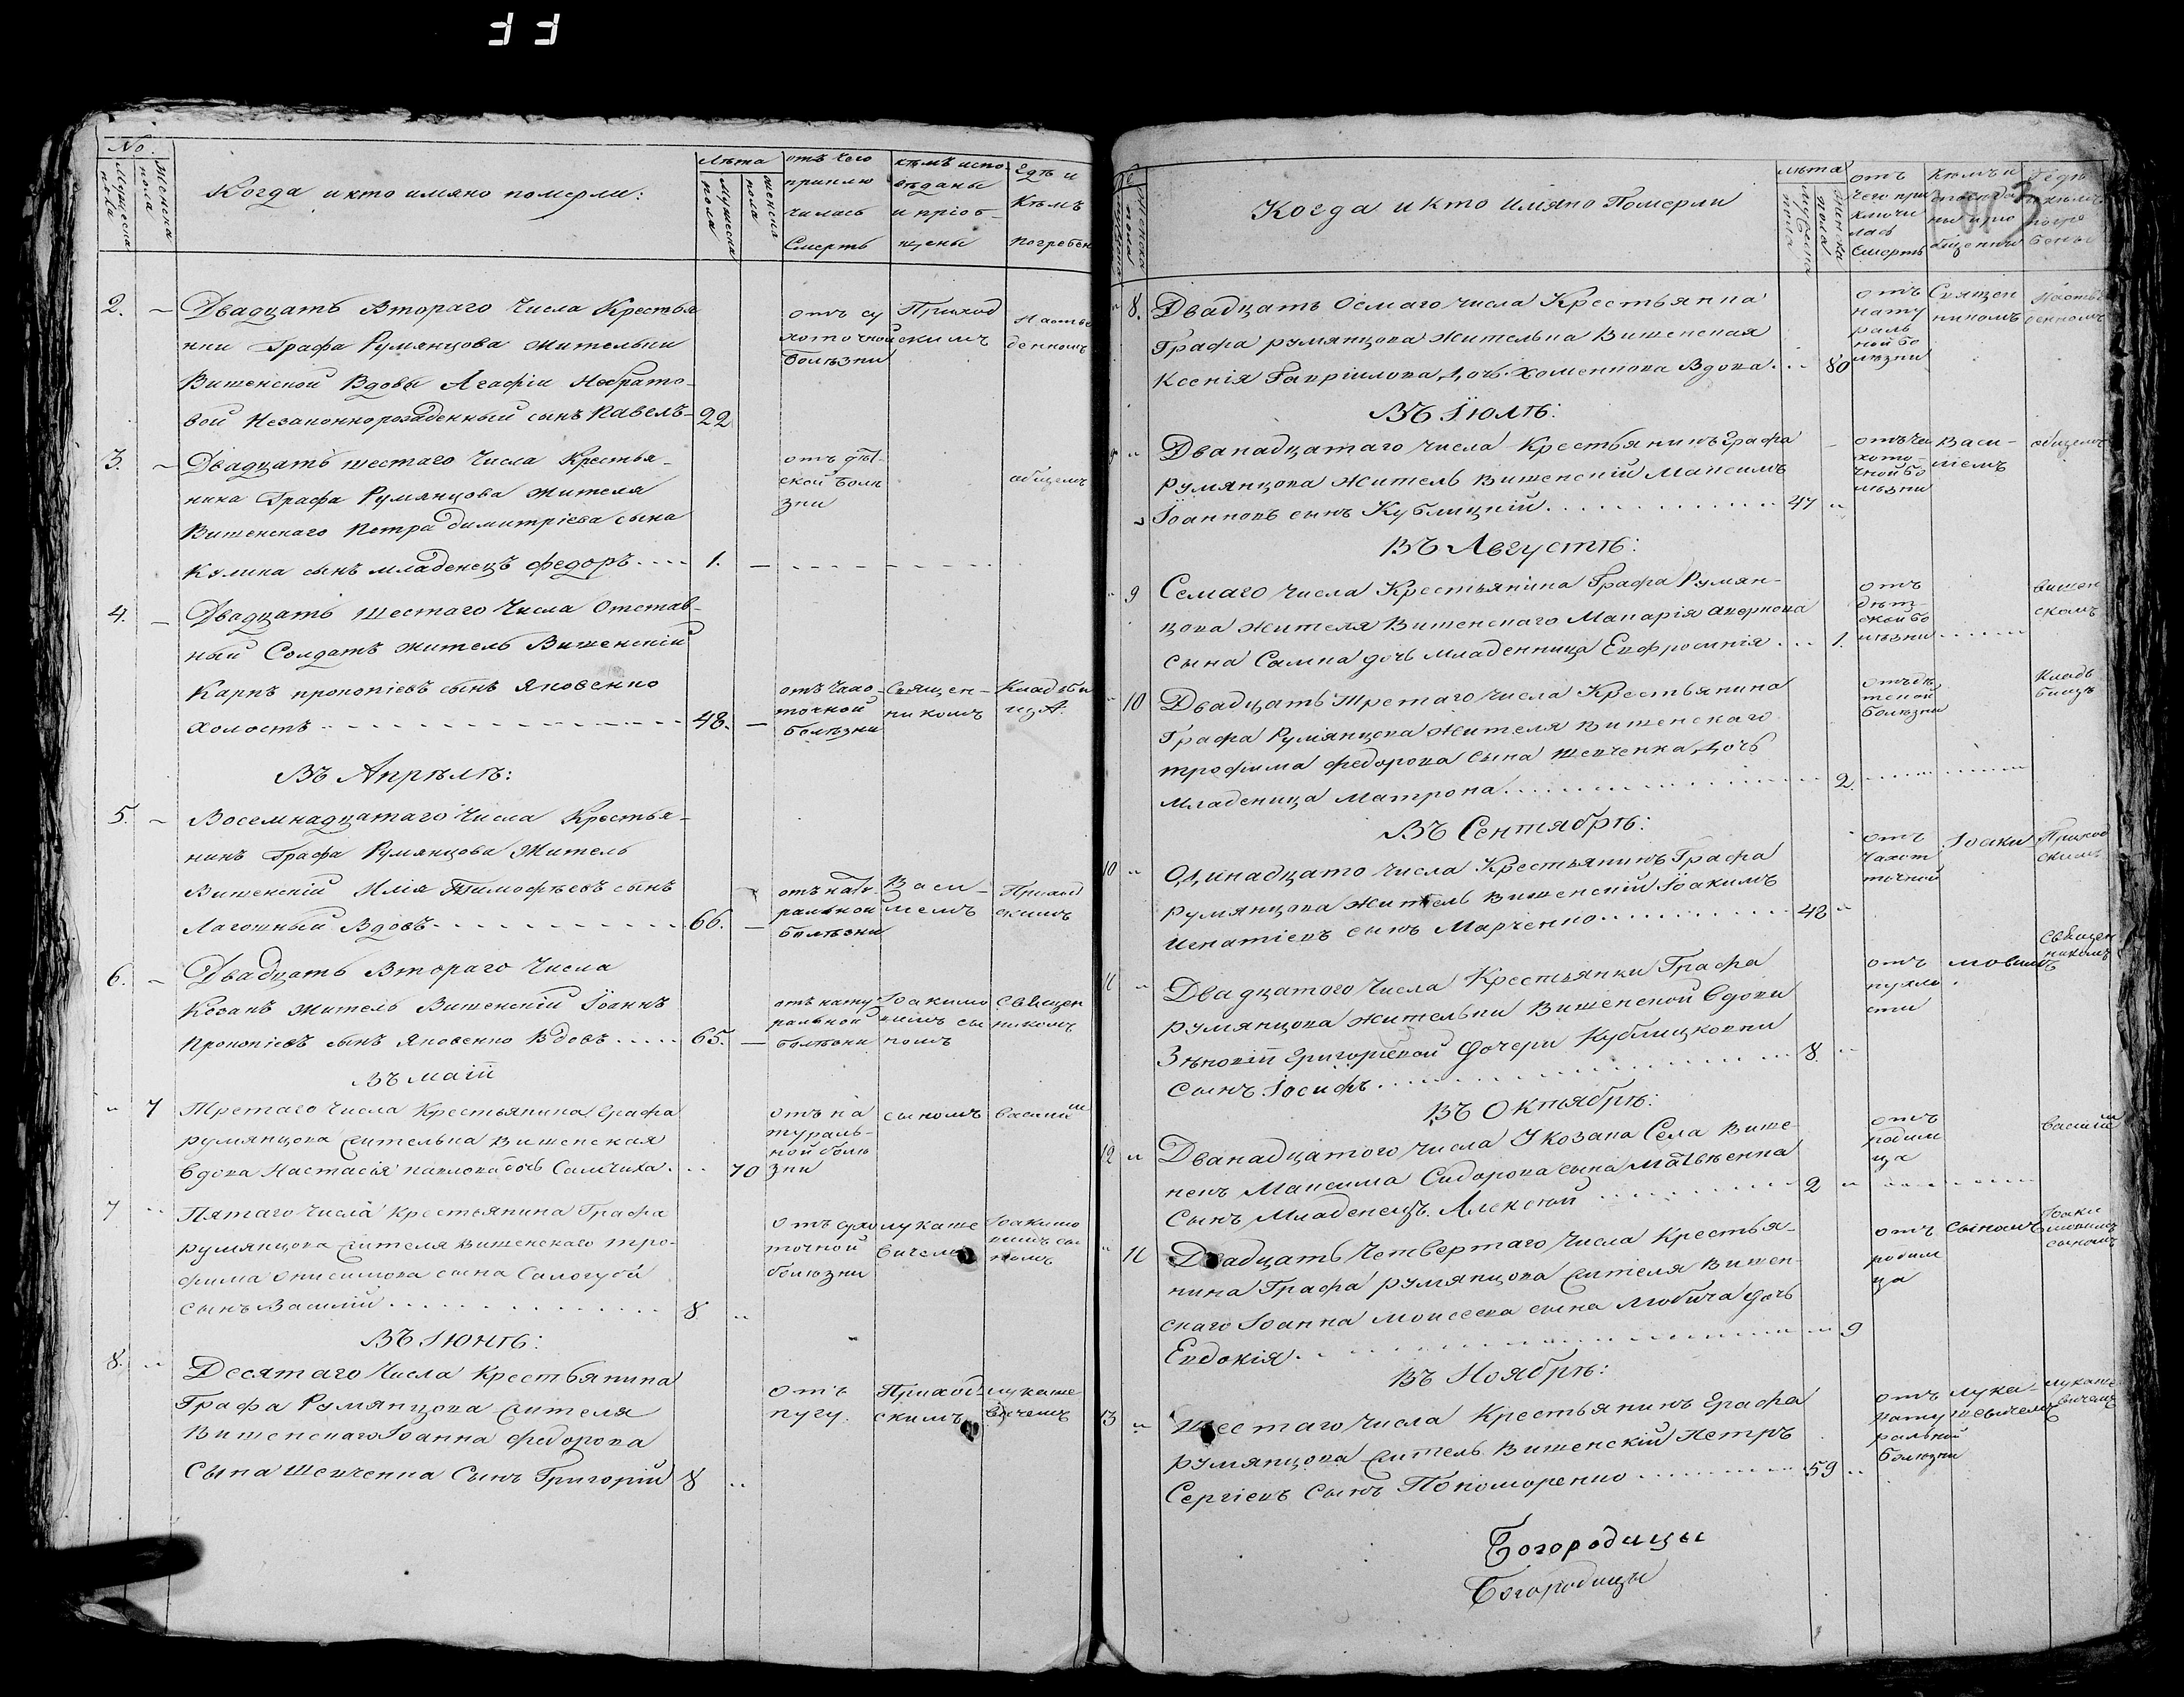 33
No.
Мужеска пола
Женска пола
Когда и кто имяно померли:
Лѣта
Мужеска пола
женска пола
отъ чего приключилась Смерть
кѣмъ исповѣданы и пріобщены
Гдѣ и Кѣмъ погребены
2. Двадцать Втораго Числа Крестья
нки Графа Румянцова жительки
Вишенской Вдовы Агафіи
вой Незаконнорожденный сынъ Павелъ 22
отъ су
хоточной
болѣзни
Приход
скимъ
3. Двадцать шестаго Числа Крестья-
нина Графа Румянцова жителя
Вишенскаго Петра димитріева сына
Кулика сынъ младенецъ федоръ.... 1.
отъ дѣт-
ской болѣ
зни
общемъ
4. Двадцать Шестаго Числа Отстав-
ный Солдатъ житель Вишенскій
Карпъ прокопіевъ сынъ Яковенко
холостъ 48.
точной
болѣзни
Священ-
никомъ
Кладби
Въ Апрѣлѣ:
5. Восемнадцатаго Числа Крестья-
нинъ Графа Румянцова Житель
Вишенскій Илія Тимофѣевъ сынъ
Вдовъ 66.
отъ нату-
ральной
болѣзни
Васи-
лемъ
Приход
скимъ
6. Двадцать Втораго Числа
Козакъ житель Вишенскій Іоаннъ
Прокопіевъ сынъ Яковенко Вдовъ..... 65.
отъ нату
ральной
болѣзни
Іоакимо
вимъ сы
номъ
Священ
никомъ
Въ Маіи
7 Третаго Числа Крестьянина Графа
румянцова жителька Вишенская
вдова Настасія павлова дочь Самчиха. 70
отъ на
тураль-
ной болѣ
зни
сыномъ
Василіем
7 Пятаго Числа Крестьянина Графа
румянцова жителя Вишенскаго тро-
фима Онисимова сына Салогуба
сынъ Василій 8
отъ сухо
точной
болюзни
лукаше
вичемъ
Іоакимо
вимъ сы
номъ
Въ Іюнѣ:
8. Десятаго Числа Крестьянина
Графа Румянцова жителя
Вишенскаго Іоанна федорова
Сына Шевченка Сынъ Григорій 8
отъ
пугу.
Приход
скимъ
лукаше
вичемъ
Когда и кто Имяно Померли
лѣта
отъ
чего при
ключи
лась
Смерть
8. Двадцать Осмаго числа Крестьянка
Графа румянцова жителька Вишенская
Ксенія Гавріилова дочь Хоменкова Вдова... 80
отъ
нату
раль
ной бо
лѣзни
Священ
никомъ
Въ Іюлѣ:
Дванадцатаго числа Крестьянинъ Графа
румянцова Житель Вишенскій Максимъ
Іоанновъ сынъ Кублицкій 47
хото-
чной бо
лѣзни
Васи-
лемъ
общемъ
Въ Августѣ:
9 Семаго числа Крестьянина Графа Румян-
цова жителя Вишенскаго Макарія аверкова
сына Самка дочь младенница Евфросинія 1.
отъ
дѣт-
ской бо
лѣзни
вишен
скомъ
10 Двадцать Третаго Числа Крестьянина
Графа Румянцова жителя Вишенскаго
трофима федорова сына Шевченка дочь
младеница Матрона 2.
болѣзни
кладь
бищѣ
Въ Сентябрѣ:
10 Одинадцато числа Крестьянинъ Графа
румянцова житель Вишенскій Іоакимъ
Игнатіевъ сынъ Марченко 48
отъ
чахот
точной
Іоаки
Приход
скимъ
11 Двадцатого Числа Крестьянки Графа
румянцова жительки Вишенской вдови
Зѣновіи Григоріевой дочери Кублицковни
Сынъ Іосифъ 8.
отъ
пухло
сти
мовимъ
Священ
никомъ
Въ Октябрѣ:
12 Дванадцатого числа У козака Села Више-
некъ Максима Сидорова сына Матвѣенка
Сынъ Младенецъ Алексѣй 2
отъ
родим
ца
Василіем
11 Двадцать Четвертаго Числа Крестья-
нина Графа румянцова жителя Вишен-
скаго Іоанна Моисеева сына Любича дочь
Евдокія 9
отъ
родим
ца
сыномъ
Іоаки
мовимъ
сыномъ
Въ Ноябрѣ:
13 Шестаго Числа Крестьянинъ Графа
румянцова житель Вишенскій Петръ
Сергіевъ Сынъ Пономоренко 59
отъ
нату
ральной
болюзни
лука-
шевичемъ
лукаше
вичемъ
Богородицы
Богородицы